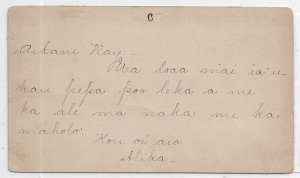 C
Aikane Ray
Ua loaa mai ia'u
kau pepa poo leka a me
ka ale ma naka me ka
maholo.
Kou oiaio
Alika